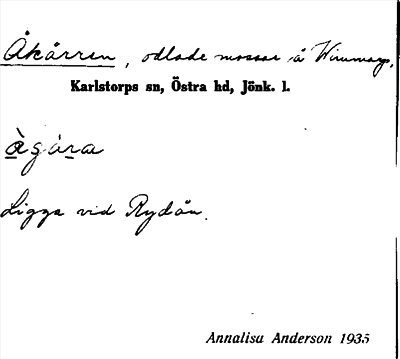 Åkärren, odlade mossar å Wimmarp,
Karlstorps sn, Östra hd, Jönk. l.
àgára
Ligga vid Rydån.
Annalisa Anderson 1935